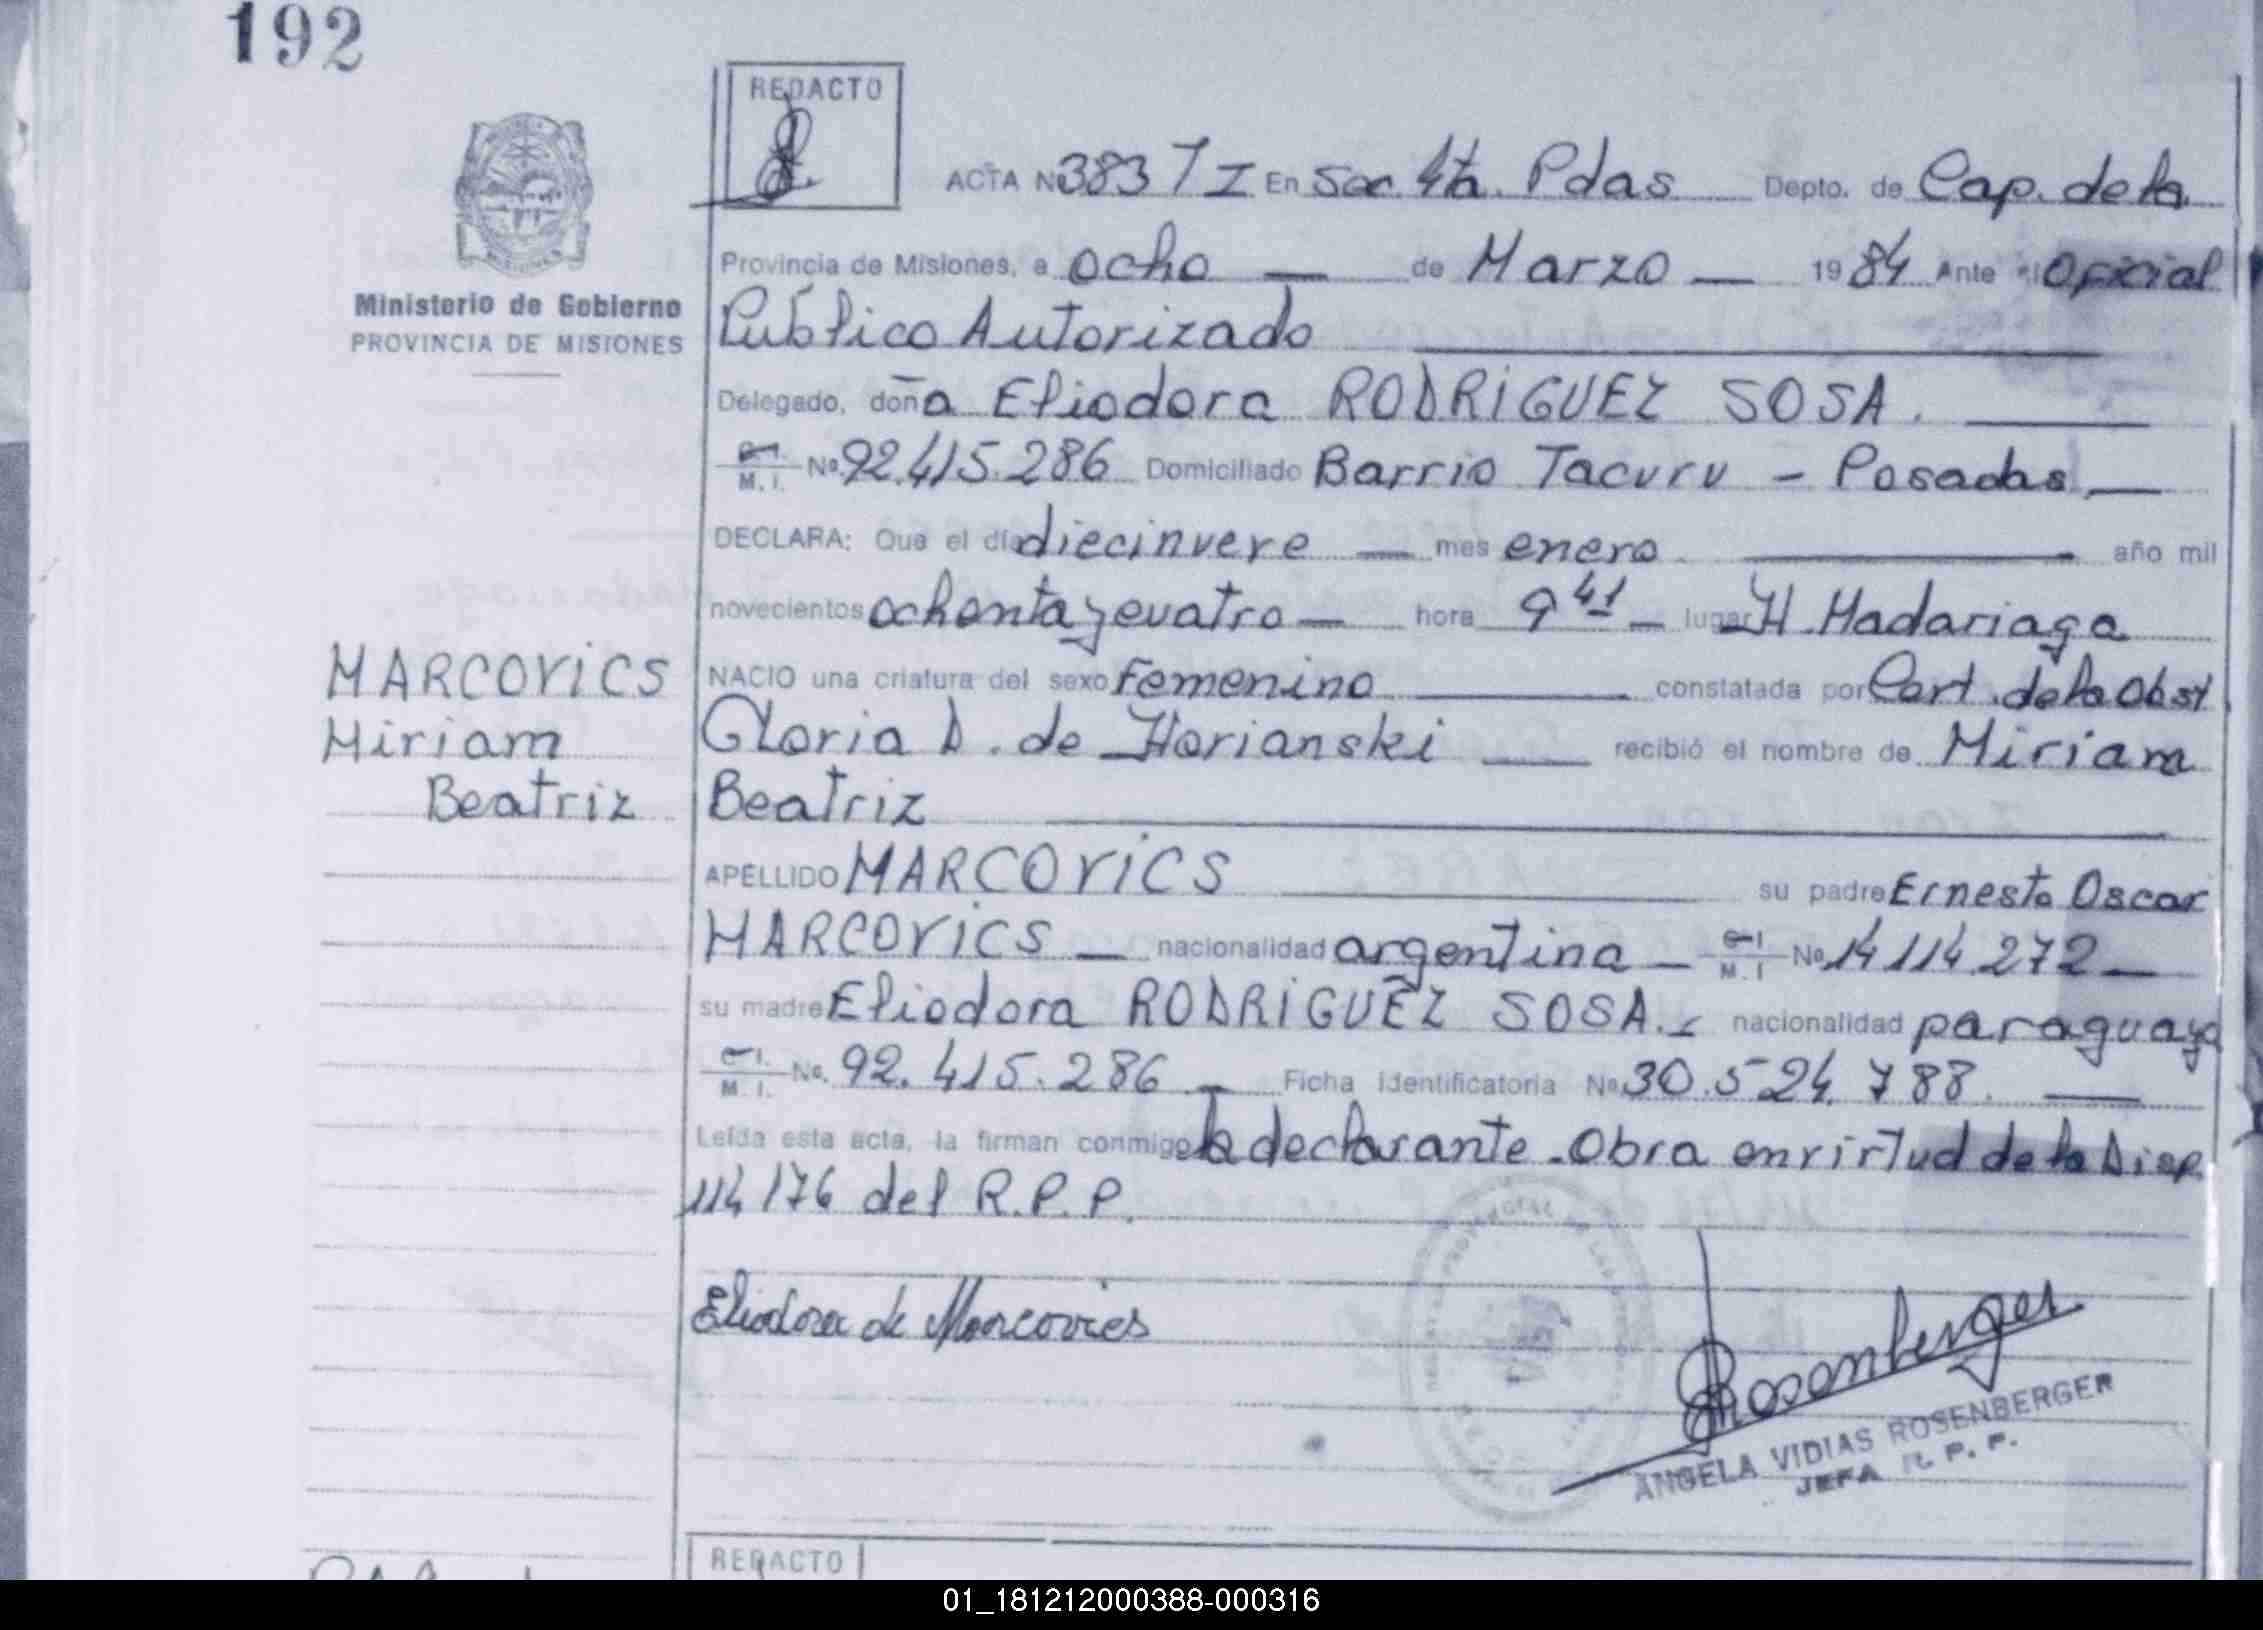 192
REDACTO
ACTA Nº 383 7 I En Sec 4ta. Pdas Depto. de Cap. de la
Provincia de Misiones, a ocho — de Marzo — 1984 Ante el Oficial
Ministerio de Gobierno
PROVINCIA DE MISIONES
Público Autorizado
Delegado, doña Eliodora RODRIGUEZ SOSA.
M. I. No. 92.415.286 Domiciliado Barrio Tacuru - Posadas —
DECLARA: Que el día diecinueve — mes enero — año mil
novecientos ochenta y cuatro — hora 9 41 — lugar H. Madariaga
MARCOVICS
Miriam
Beatriz
NACIO una criatura del sexo Femenino — constatada por Cert. de la Obst
Gloria D. de Horianski — recibió el nombre de Miriam
Beatriz
APELLIDO MARCOVICS — su padre Ernesto Oscar
MARCOVICS — nacionalidad argentina — M. I No. 14 114 272 —
su madre Eliodora RODRIGUEZ SOSA. - nacionalidad paraguaya
M. I. No. 92. 415. 286 — Ficha Identificatoria No. 30.524.788. —
Leída esta acta, la firman conmigo la declarante. Obra en virtud de la Disp.
114/76 del R.P.P.
Eliodora de Marcovics
Rosenberger
ANGELA VIDIAS ROSENBERGER
JEFA R. P. P.
REDACTO
01_181212000388-000316